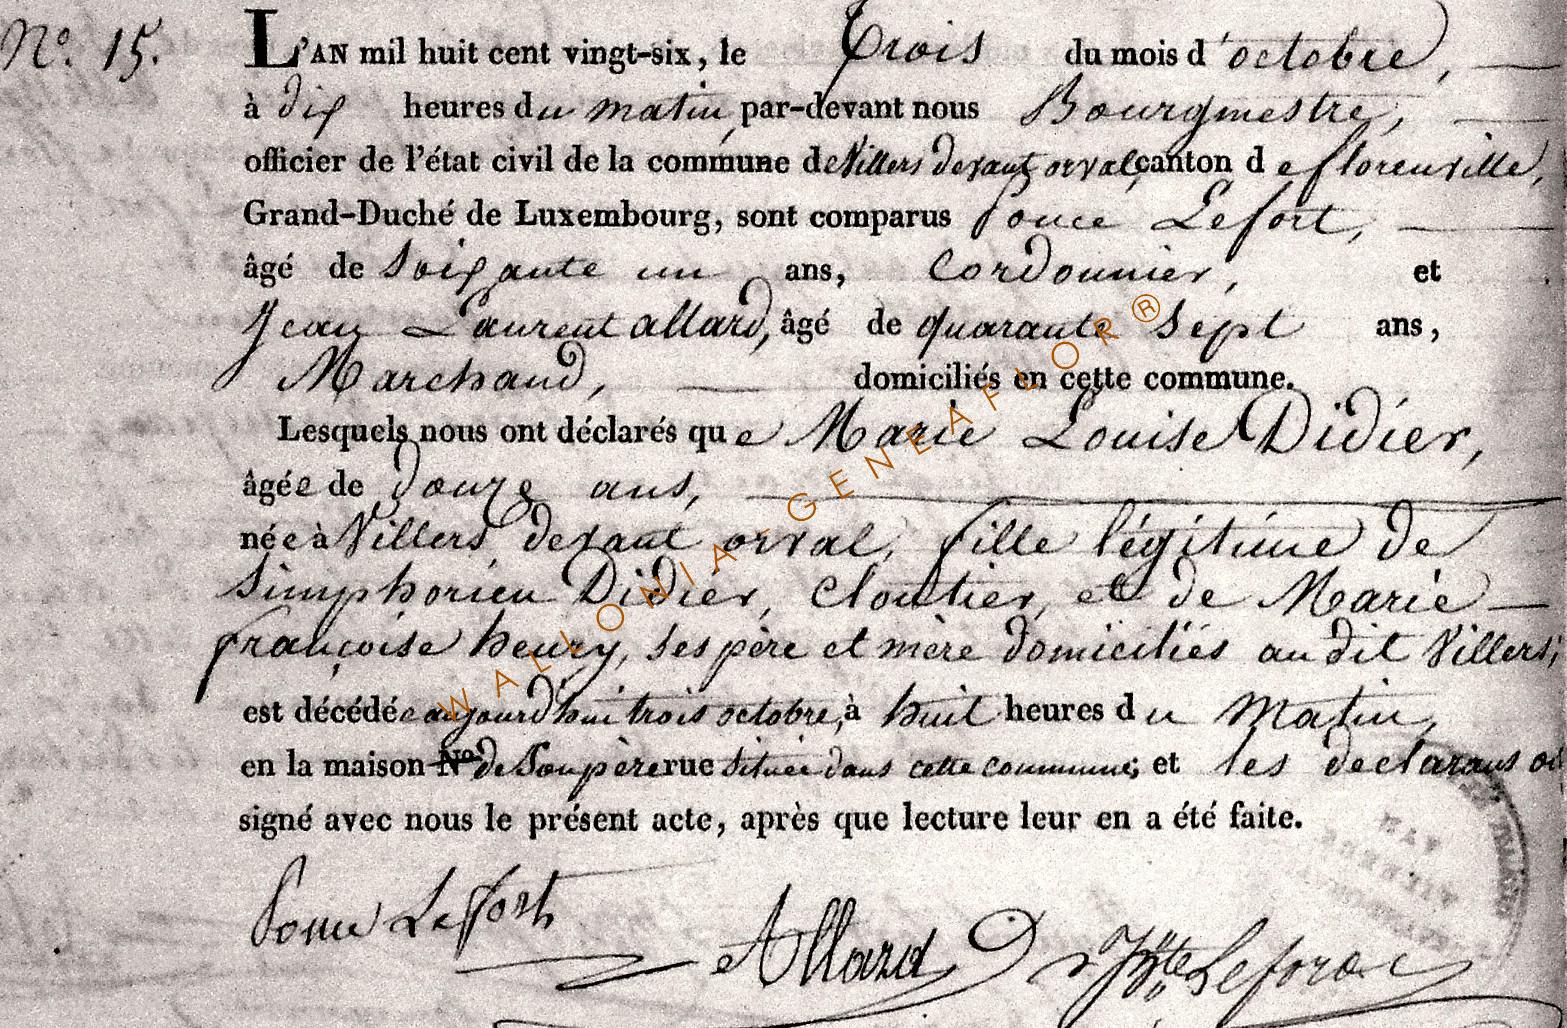 N.° 15.
L'AN mil huit cent vingt-six, le Trois du mois d'octobre,
à dix heures du matin, par-devant nous Bourgmestre,
officier de l'état civil de la commune de Villers devant orval, canton de florenville,
Grand-Duché de Luxembourg, sont comparus Ponce Lefort,
âgé de Soixante un ans, Cordonnier, et
Jean Laurent allard, âgé de quarante Sept ans,
Marchand, domiciliés en cette commune.
Lesquels nous ont déclarés que Marie Louise Didier,
âgée de douze ans,
née à Villers devant orval, fille légitime de
Simphorien Didier, Cloutier, et de Marie
françoise henry, Ses père et mère domiciliés au dit Villers,
est décédée aujourd'hui trois octobre, à huit heures du Matin,
en la maison N° de Son père rue située dans cette commune; et les déclarans
signé avec nous le présent acte, après que lecture leur en a été faite.
Ponce Lefort
Allard
WALLONIA-GENEAFLOR®